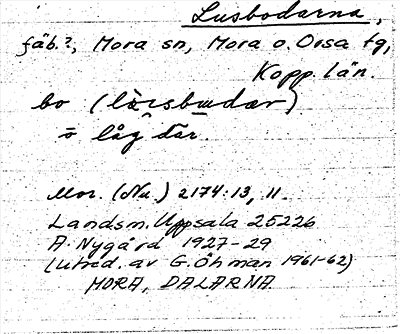 Lusbodarna,
fäb.?, Mora sn, Mora o. Orsa tg,
Kopp. län.
bo
= låg där.
Mor. (Nu.) 2174:13, 11.
Landsm. Uppsala 25226
A. Nygård 1927-29
(utred. av G. Öhman 1961-62)
MORA, DALARNA